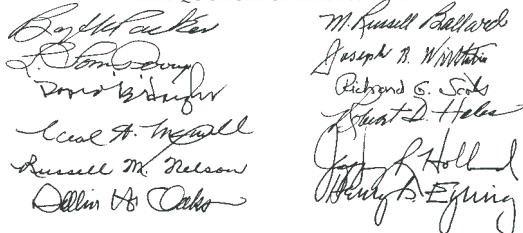 Boyd K Packer
L. Tom Perry
David B. Haight
Neal A. Maxwell
Russell M. Nelson
Dallin H. Oaks
M. Russell Ballard
Joseph B. Wirthlin
Richard G. Scott
Robert D. Hales
Jeffrey R. Holland
Henry B. Eyring